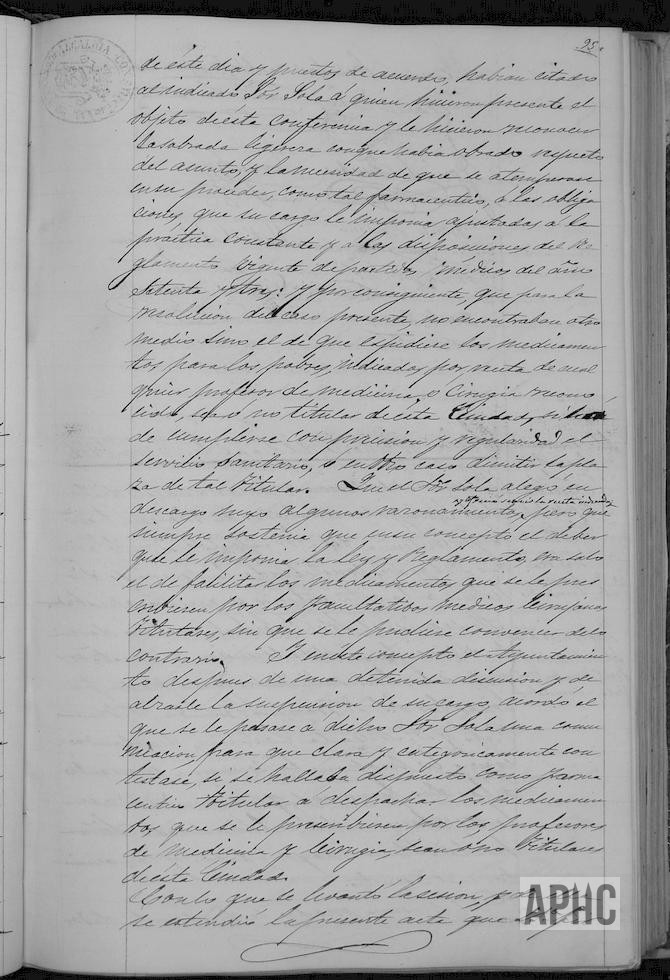 95.
de éste dia y puestos de acuerdo, habian citado
al indicado Sor Sola á quien hicieron presente el
objeto de esta conferencia y le hicieron reconocer
la sobrada ligereza conque habia obrado respecto
del asunto, y la necesidad de que se atemperase
en su proceder, como tal farmaceutico, a las obliga
ciones que su cargo le imponia ajustadas á la
práctica constante y a las disposiciones del Re
glamento vigente de partidos médicos del año
setenta y tres: y por consiguiente, que para la
resolucion del caso presente, no encontraban otro
medio sino el de que espidiese los medicamen
tos para los pobres, indicados por receta de cual
quier profesor de medicina o Cirugia recono
cido, sea ó no titular de esta Ciudad, si ha
de cumplirse con precision y regularidad el
servicio sanitario, ó en otro caso dimitir la pla
za de tal titular. Que el Sor Sola alegó en
descargo suyo algunos razonamientos, pero que
siempre sostenia que en su concepto el deber
que le imponia la Ley y Reglamento, era solo
el de facilitar los medicamentos que se le pres
cribiesen por los facultativos medicos Cirujanos
titulares, sin que se le pudiese convencer de lo
contrario. Y en este concepto el Ayuntamien
to despues de una detenida discusion y de
alzarle la suspension de su cargo, acordó el
que se le pasase á dicho Sor Sola una comu
nicacion, para que clara y categoricamente con
testase, si se hallaba dispuesto como farma
ceutico titular á despachar los medicamen
tos que se le prescribiesen por los profesores
de medicina y Cirugia, sean ó no titulares
de esta Ciudad.
Con lo que se levantó la sesion, y
se estendió la presente acta que
APHC